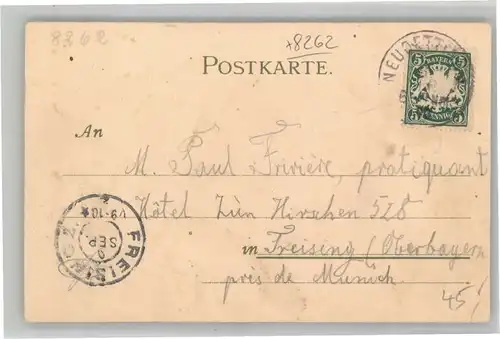 8262
+8262
POSTKARTE.
NEUOETT
BAYERN
5 5
PFENNIG
An
M. Paul Frivière, pratiquant
Hôtel Zùm Hirschen 528
in Freising (Oberbayern
près de Munich.
FREISING
SEP.
V 9-10
45/